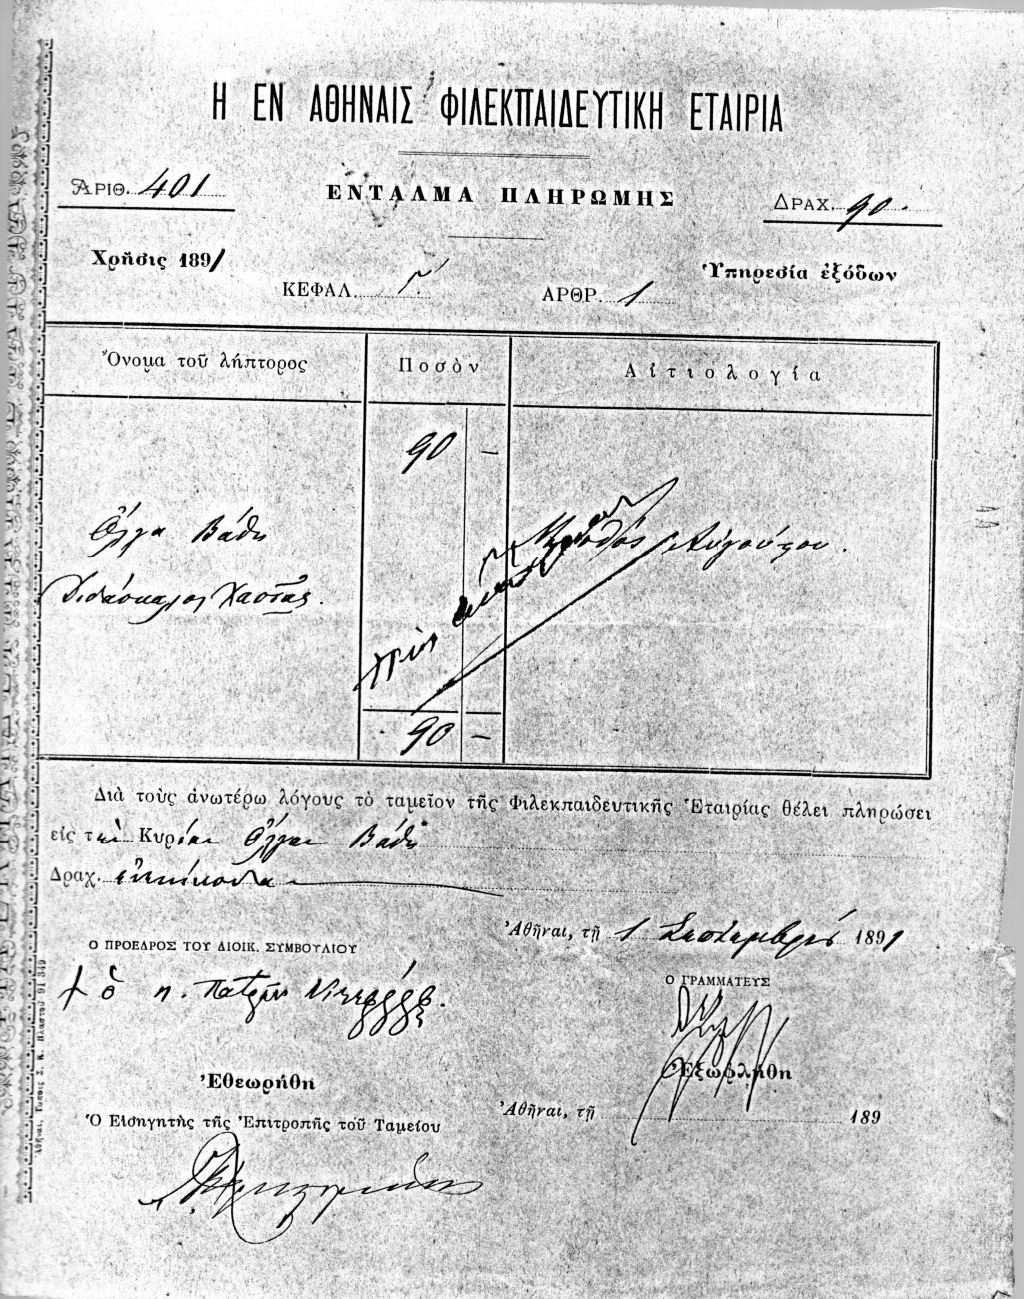 Η ΕΝ ΑΘΗΝΑΙΣ ΦΙΛΕΚΠΑΙΔΕΥΤΙΚΗ ΕΤΑΙΡΙΑ
ἈΡΙΘ. 401
ΕΝΤΑΛΜΑ ΠΛΗΡΩΜΗΣ
ΔΡΑΧ. 90.
Χρῆσις 1891
ΚΕΦΑΛ. Γ'
ΑΡΘΡ. 1
Ὑπηρεσία ἐξόδων
Ὄνομα τοῦ λήπτορος
Ποσὸν
Αἰτιολογία
90 –
Ὄλγα Βάθη
Μισθὸς Αὐγούστου.
Διδάσκαλος Χασιᾶς.
90 –
Διὰ τοὺς ἀνωτέρω λόγους τὸ ταμεῖον τῆς Φιλεκπαιδευτικῆς Ἑταιρίας θέλει πληρώσει
εἰς τὴν Κυρίαν Ὄλγαν Βάθη
Δραχ. ἐνενήκοντα
Ἀθῆναι, τῇ 1 Σεπτεμβρίου 1891
Ο ΠΡΟΕΔΡΟΣ ΤΟΥ ΔΙΟΙΚ. ΣΥΜΒΟΥΛΙΟΥ
Ο ΓΡΑΜΜΑΤΕΥΣ
† ὁ π. Πατρῶν
Ἐθεωρήθη
Ἐξωφλήθη
Ὁ Εἰσηγητὴς τῆς Ἐπιτροπῆς τοῦ Ταμείου
Ἀθῆναι, τῇ 189
Ἀθῆναι, Τύποις Σ. Κ. Βλαστοῦ 91 849